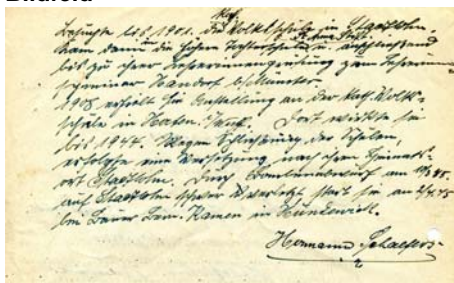 Bildfeld
kath.
besuchte bis 1901. die Volksschule in Stadtlohn.
kam dann die höhere Töchterschule u. anschließend
bis zu ihrer Lehrerinnenprüfung zum Lehrerinnen
seminar Handorf b/Münster.
1908 erhielt sie Anstellung an der kath. Volks-
schule in Herten. Dort wirkte sie
bis 1944. Wegen Schließung der Schulen,
erfolgte eine Versetzung nach ihrem Heimat-
ort Stadtlohn. Durch Bombenabwurf am
auf Stadtlohn schwer verletzt starb sie am
bei Bauer Ramen in Hundewick.
Hermann Schaefers